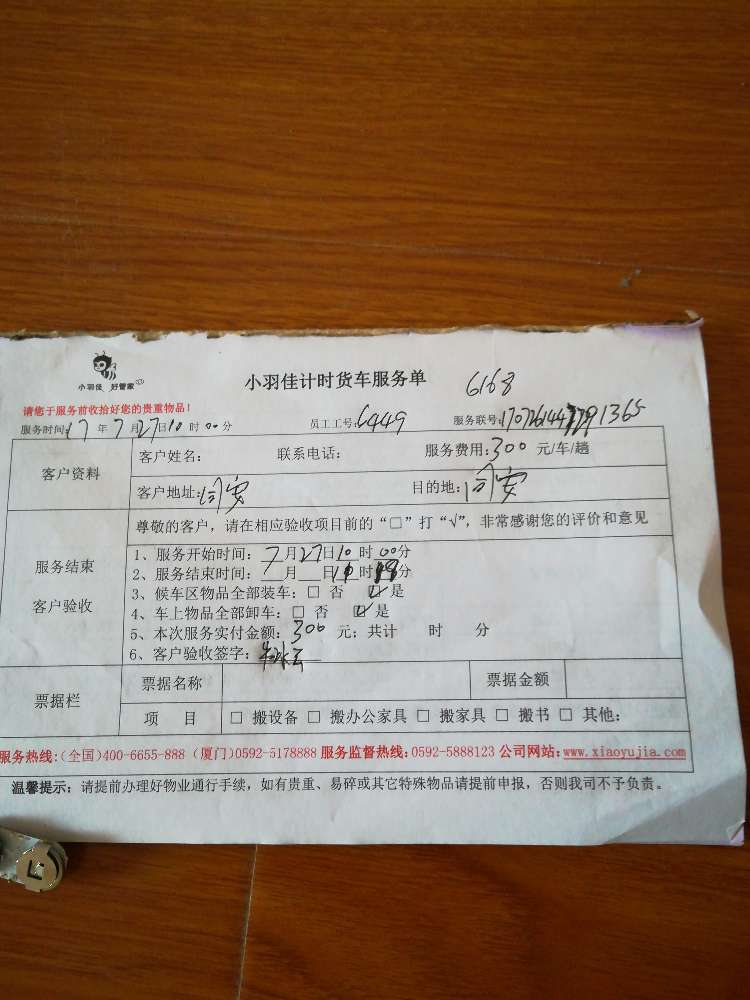 小羽佳 好管家
小羽佳计时货车服务单 6168
请您于服务前收拾好您的贵重物品！
服务时间:17年7月27日10时00分 员工工号:6449 服务联号:
客户资料 客户姓名： 联系电话： 服务费用:300 元/车/趟
客户地址:同安 目的地:同安
尊敬的客户，请在相应验收项目前的“□”打“√”,非常感谢您的评价和意见
服务结束
客户验收
1、服务开始时间：7月27日10时00分
2、服务结束时间：__月__日11时分
3、候车区物品全部装车：□ 否 ☑是
4、车上物品全部卸车：□ 否 ☑是
5、本次服务实付金额：300 元；共计 时 分
6、客户验收签字：
票据栏 票据名称 票据金额
项 目 □ 搬设备 □ 搬办公家具 □ 搬家具 □ 搬书 □ 其他：
服务热线:(全国)400-6655-888 (厦门)0592-5178888 服务监督热线:0592-5888123 公司网站:www.xiaoyujia.com
温馨提示：请提前办理好物业通行手续，如有贵重、易碎或其它特殊物品请提前申报，否则我司不予负责。